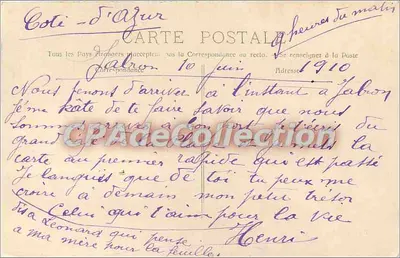 Coti - d'Azur
9 heures du matin
CARTE POSTALE
Tous les Pays étrangers n'acceptent pas la Correspondance au recto. Se renseigner à la Poste
Correspondance
Adresse
Jabron 10 juin 1910
Nous venons d'arriver à l'instant à Jabron
J'ai hâte de te faire savoir que nous
sommes du
grand la
carte au premier rapide qui est passé
Je languis que de toi tu peux me
croire à demain mon petit trésor
Celui qui t'aime pour la vie
Henri
dis a Léonard qui pense
a ma mère pour la feuille
CPAdeCollection